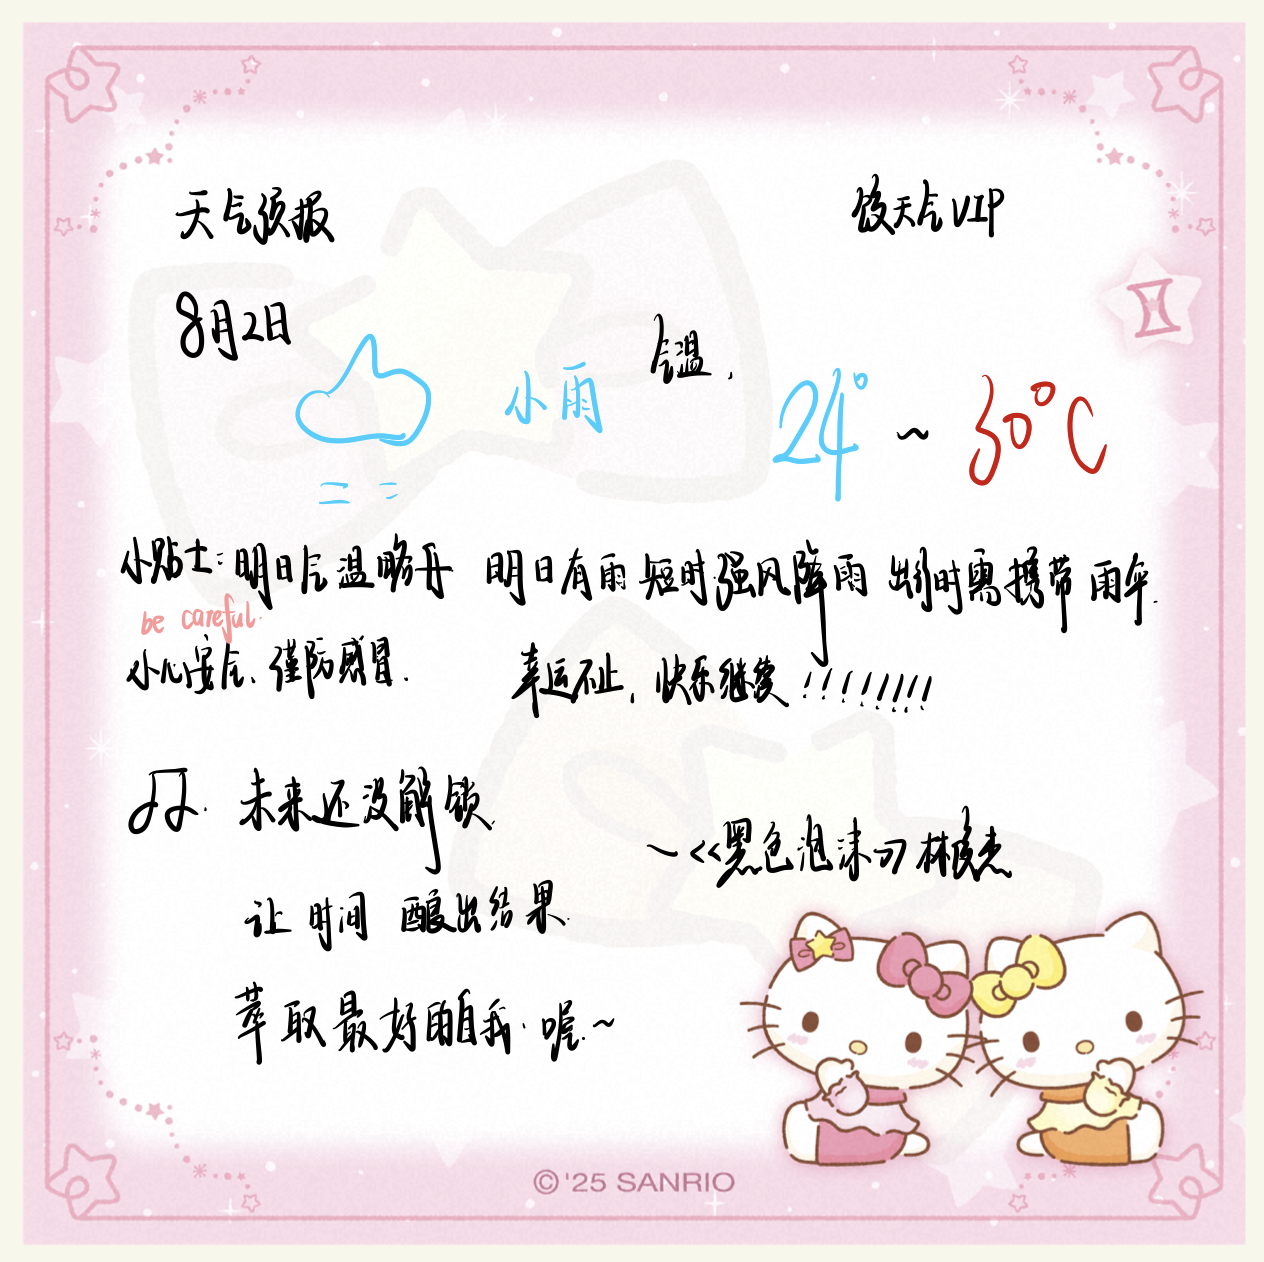 天气预报
饺天气VIP
8月2日
小雨
气温,
24° ~ 30°C
小贴士:明日气温略升 明日有雨 短时强风降雨 出行时需携带雨伞.
be careful
小心安全、谨防感冒.
幸运不止, 快乐继续!!!!!!!!
未来还没解锁.
~<<黑色泡沫>>林俊杰
让时间 酿出结果.
萃取最好的自我. 喔.~
© '25 SANRIO